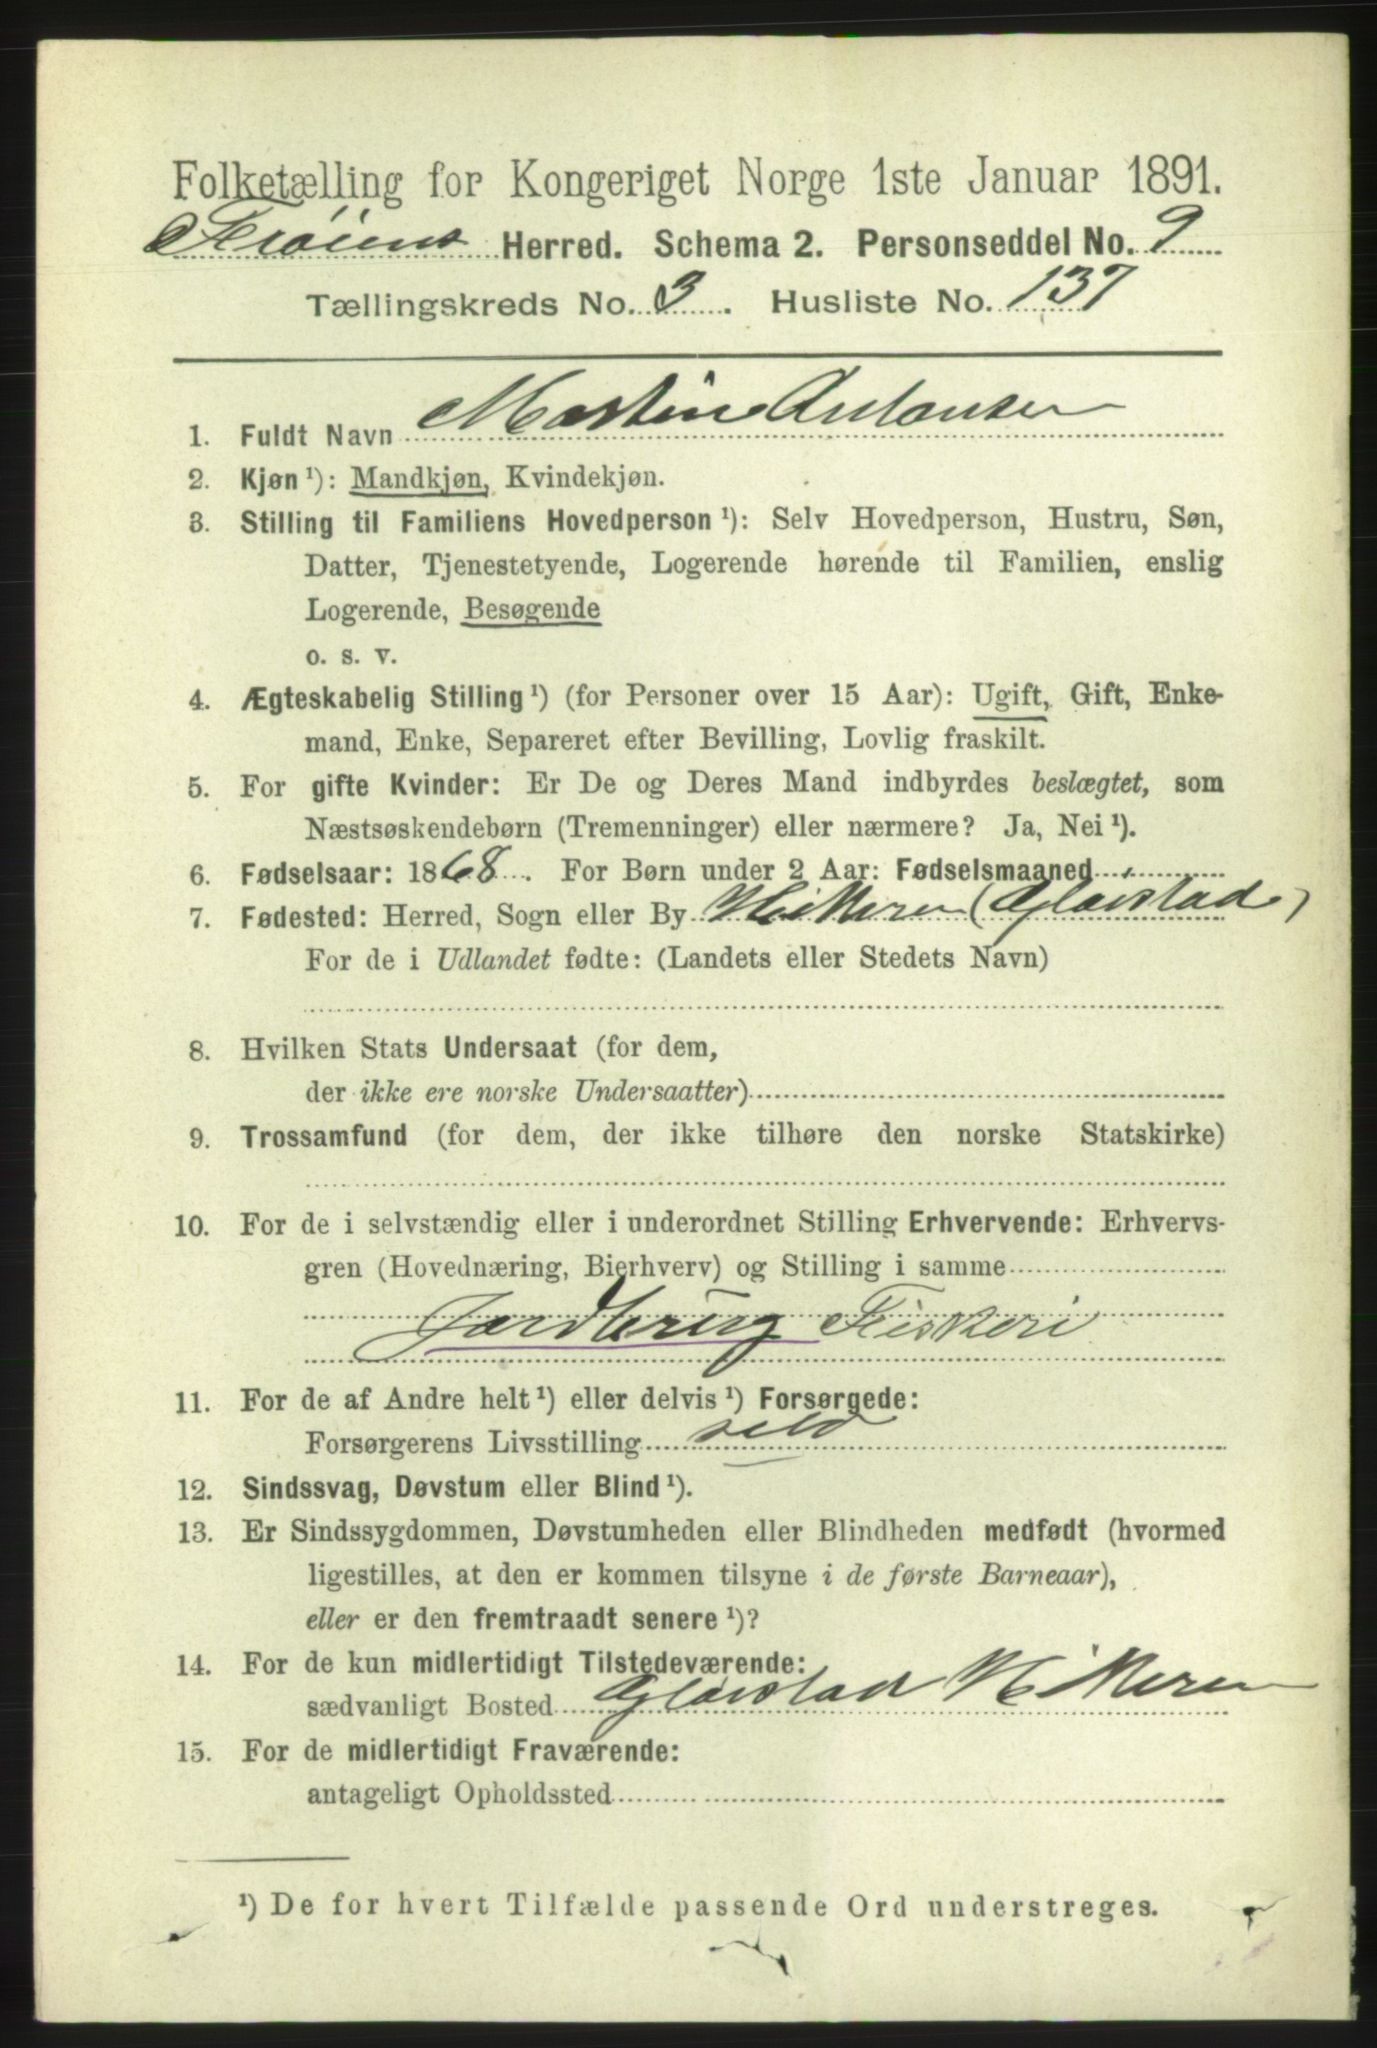 Folketælling for Kongeriget Norge 1ste Januar 1891.
Frøiens Herred. Schema 2. Personseddel No. 9
Tællingskreds No. 3. Husliste No. 137
1. Fuldt Navn Martin
2. Kjøn ¹): Mandkjøn, Kvindekjøn.
3. Stilling til Familiens Hovedperson ¹): Selv Hovedperson, Hustru, Søn,
Datter, Tjenestetyende, Logerende hørende til Familien, enslig
Logerende, Besøgende
o. s. v.
4. Ægteskabelig Stilling ¹) (for Personer over 15 Aar): Ugift, Gift, Enke-
mand, Enke, Separeret efter Bevilling, Lovlig fraskilt.
5. For gifte Kvinder: Er De og Deres Mand indbyrdes beslægtet, som
Næstsøskendebørn (Tremenninger) eller nærmere? Ja, Nei ¹).
6. Fødselsaar: 1868. For Børn under 2 Aar: Fødselsmaaned
7. Fødested: Herred, Sogn eller By Hitteren (Gløistad)
For de i Udlandet fødte: (Landets eller Stedets Navn)
8. Hvilken Stats Undersaat (for dem,
der ikke ere norske Undersaatter)
9. Trossamfund (for dem, der ikke tilhøre den norske Statskirke)
10. For de i selvstændig eller i underordnet Stilling Erhvervende: Erhvervs-
gren (Hovednæring, Bierhverv) og Stilling i samme
Jordbrug Fiskeri
11. For de af Andre helt ¹) eller delvis ¹) Forsørgede:
Forsørgerens Livsstilling selv
12. Sindssvag, Døvstum eller Blind ¹).
13. Er Sindssygdommen, Døvstumheden eller Blindheden medfødt (hvormed
ligestilles, at den er kommen tilsyne i de første Barneaar),
eller er den fremtraadt senere ¹)?
14. For de kun midlertidigt Tilstedeværende:
sædvanligt Bosted Gløistad Hitteren
15. For de midlertidigt Fraværende:
antageligt Opholdssted
¹) De for hvert Tilfælde passende Ord understreges.